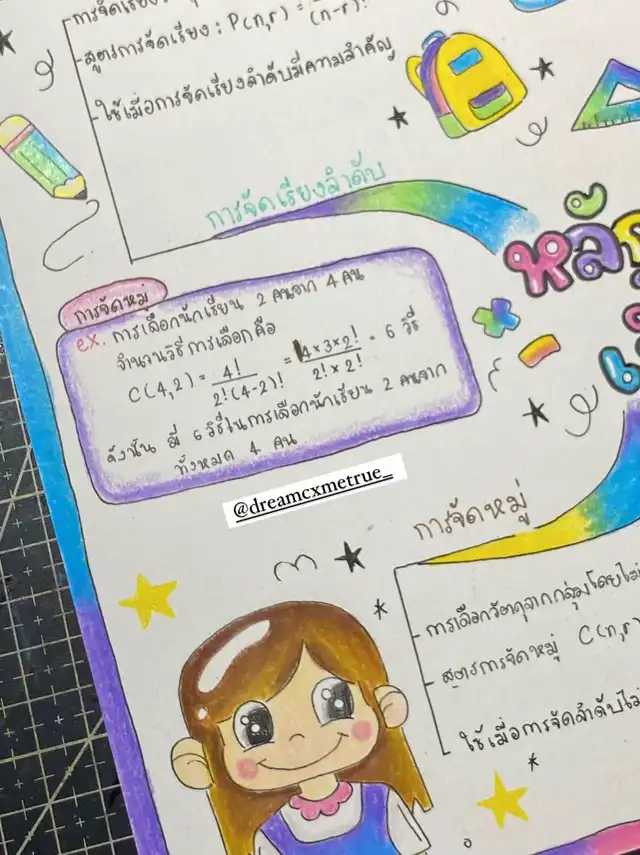 -การจัดเรียง
-สูตรการจัดเรียง : P(n,r) = (n-r)!
-ใช้เมื่อการจัดเรียงลำดับมีความสำคัญ
การจัดเรียงลำดับ
หลัก
การจัดหมู่
ex. การเลือกนักเรียน 2 คนจาก 4 คน
จำนวนวิธีการเลือกคือ
C(4,2) = 4! / 2!(4-2)! = 4×3×2! / 2!×2! = 6 วิธี
ดังนั้น มี 6 วิธีในการเลือกนักเรียน 2 คนจาก
ทั้งหมด 4 คน
@dreamcxmetrue_
การจัดหมู่
-การเลือกวัตถุจากกลุ่มโดยไม่
-สูตรการจัดหมู่ C(n,r)
ใช้เมื่อการจัดลำดับไม่